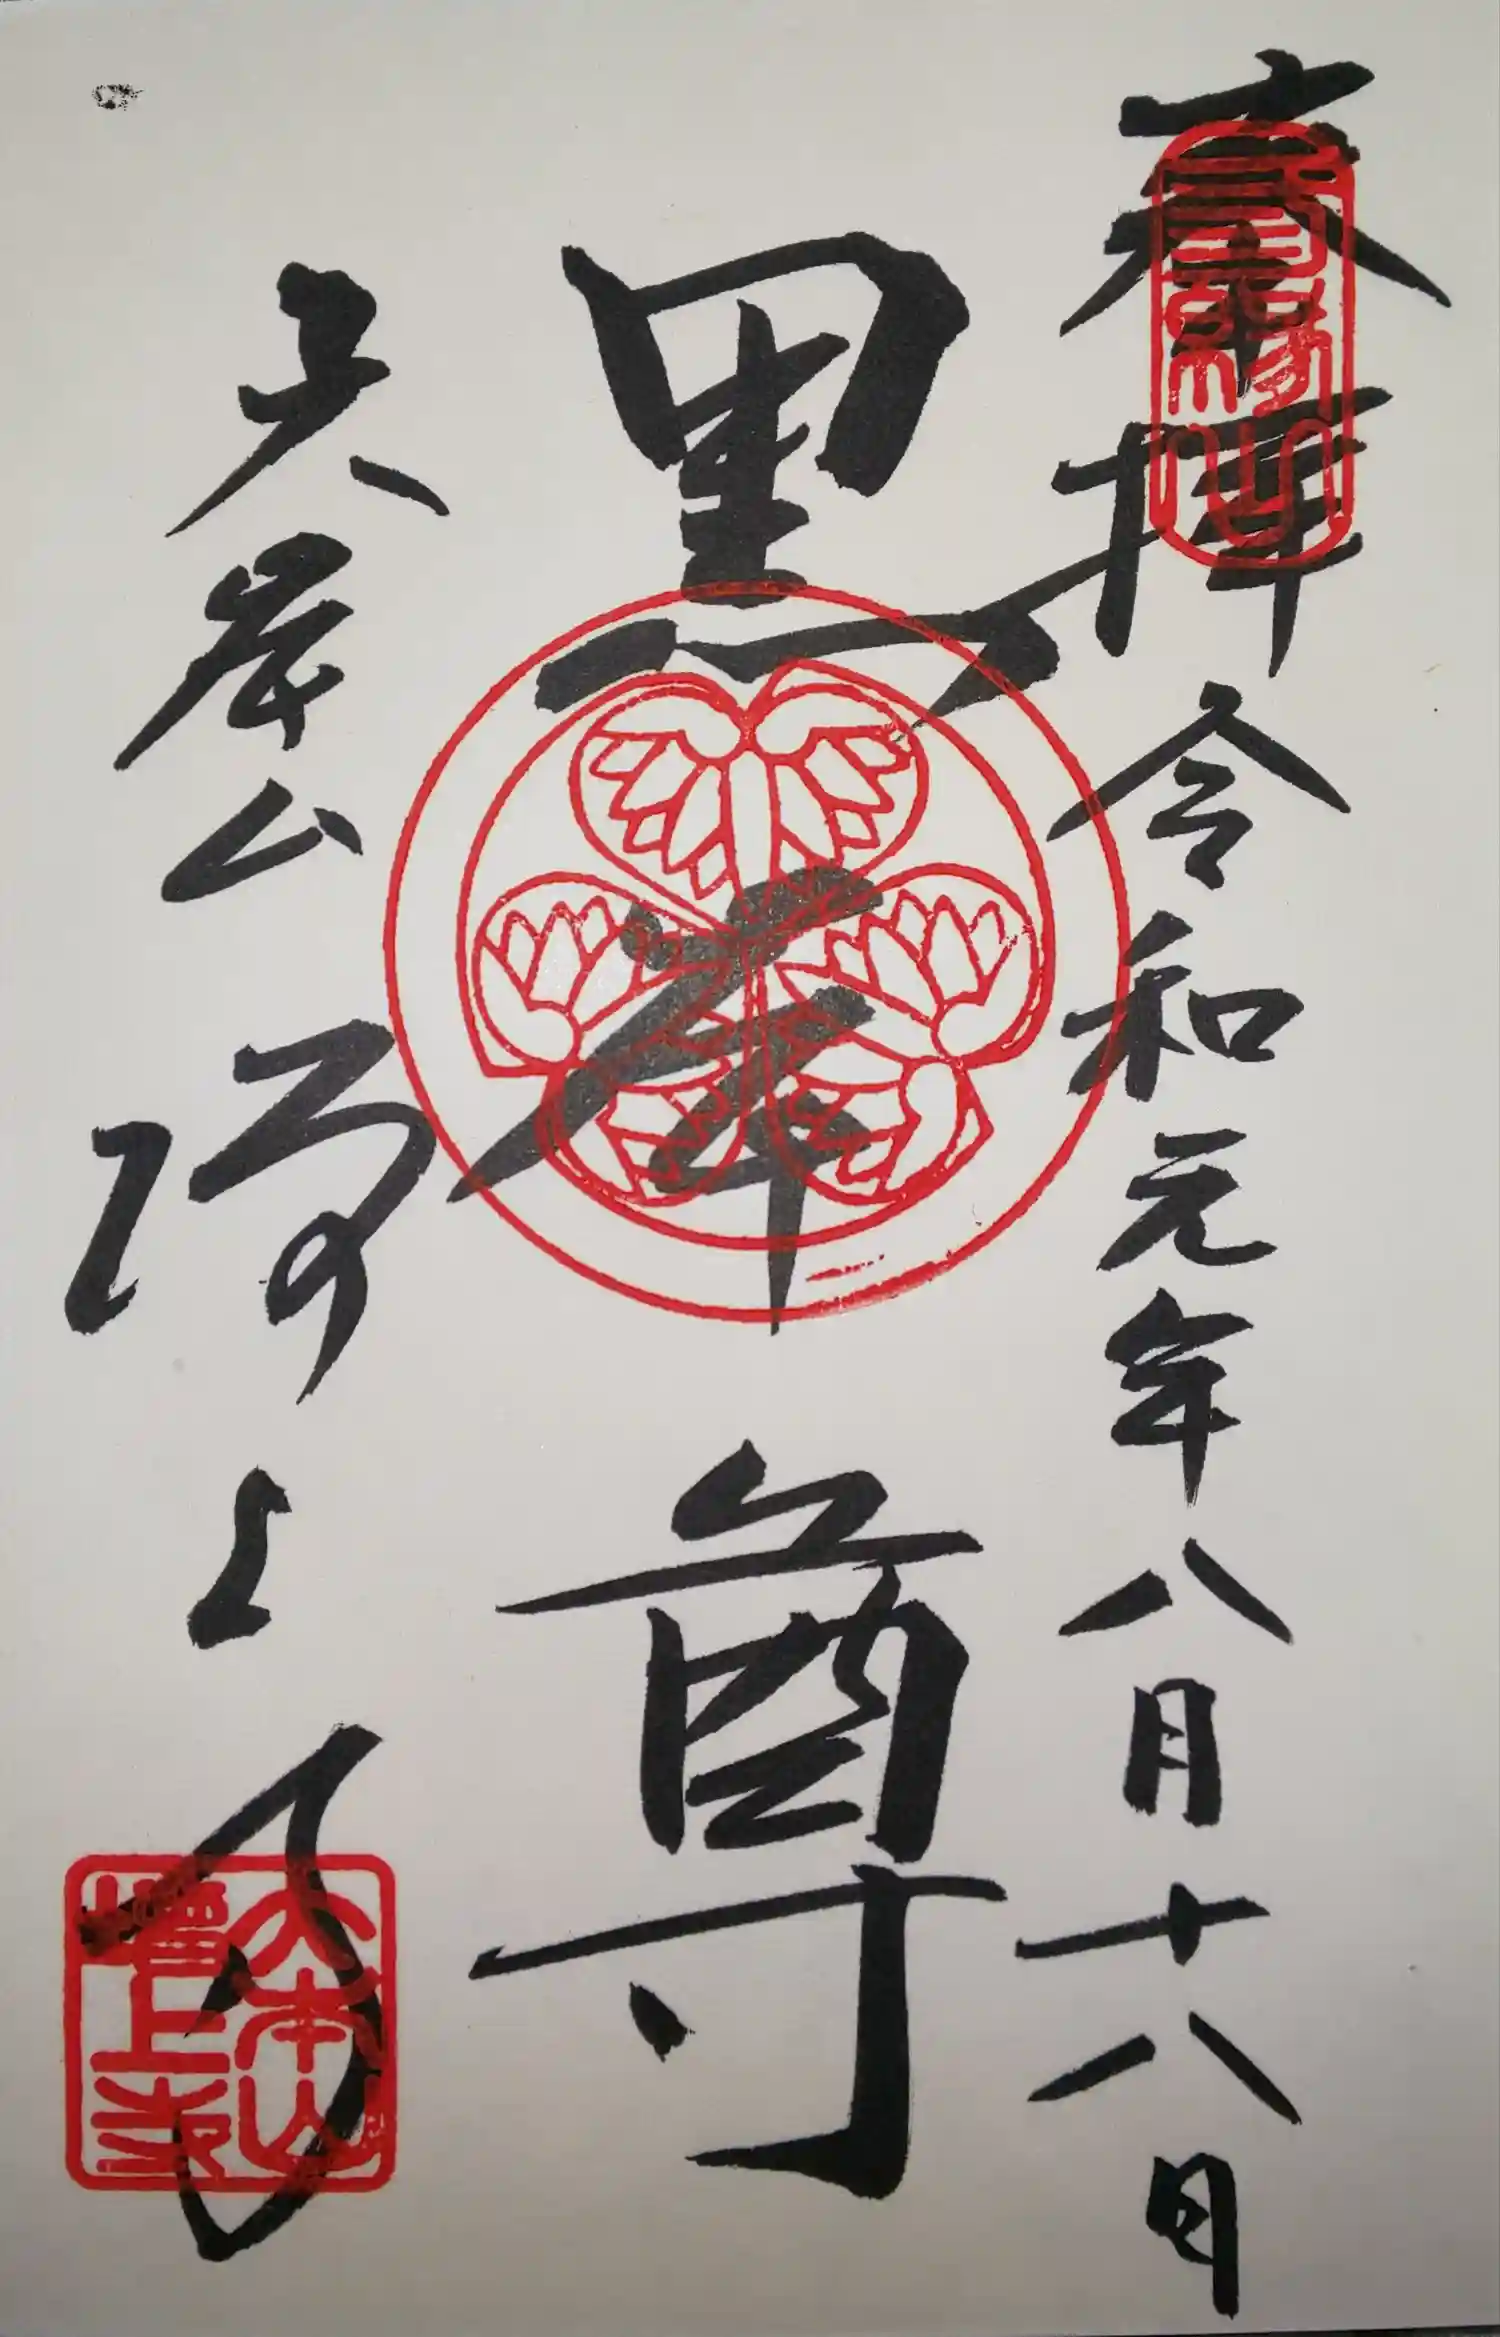 奉拝 令和元年八月十八日
三縁山
黒本尊
大本山 増上寺
大本山
増上寺